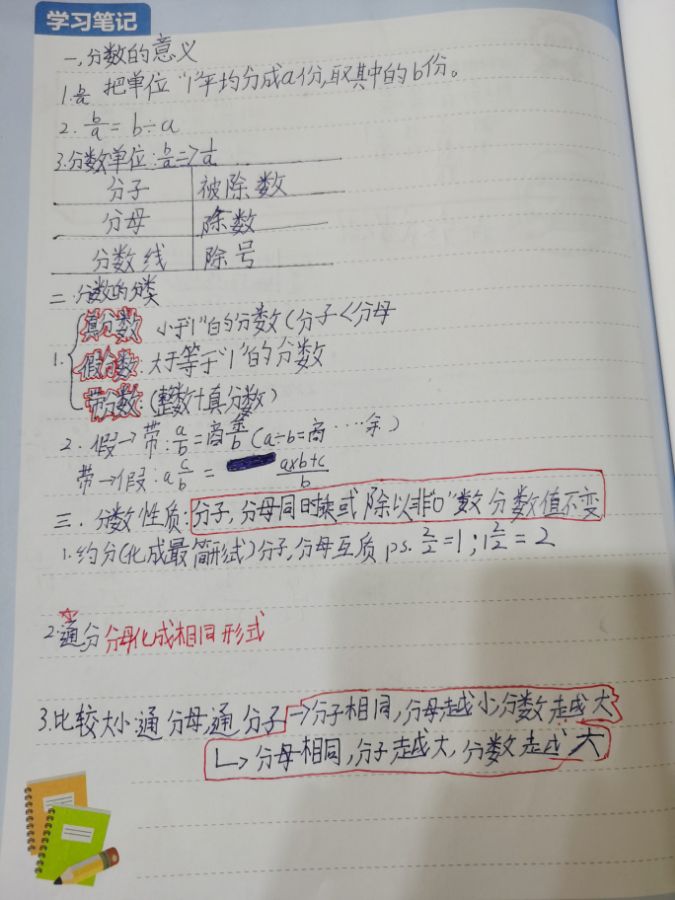 学习笔记
一,分数的意义
1. b/a 把单位"1"平均分成a份,取其中的b份。
2. b/a = b÷a
3.分数单位: b/a => 1/a
分子 被除数
分母 除数
分数线 除号
二.分数的分类
1. 真分数 小于"1"的分数(分子<分母
假分数:大于等于"1"的分数
带分数:(整数+真分数)
2. 假→带: a/b = 商 余/b (a÷b=商····余)
带→假: a c/b = (a×b+c)/b
三. 分数性质:分子,分母同时乘或除以非"0"数分数值不变
1.约分(化成最简形式)分子,分母互质 ps. 2/2=1; 1 2/2 = 2
2.通分 分母化成相同形式
3.比较大小:通分母,通分子→分子相同,分母越小,分数越大
↳分母相同,分子越大,分数越大